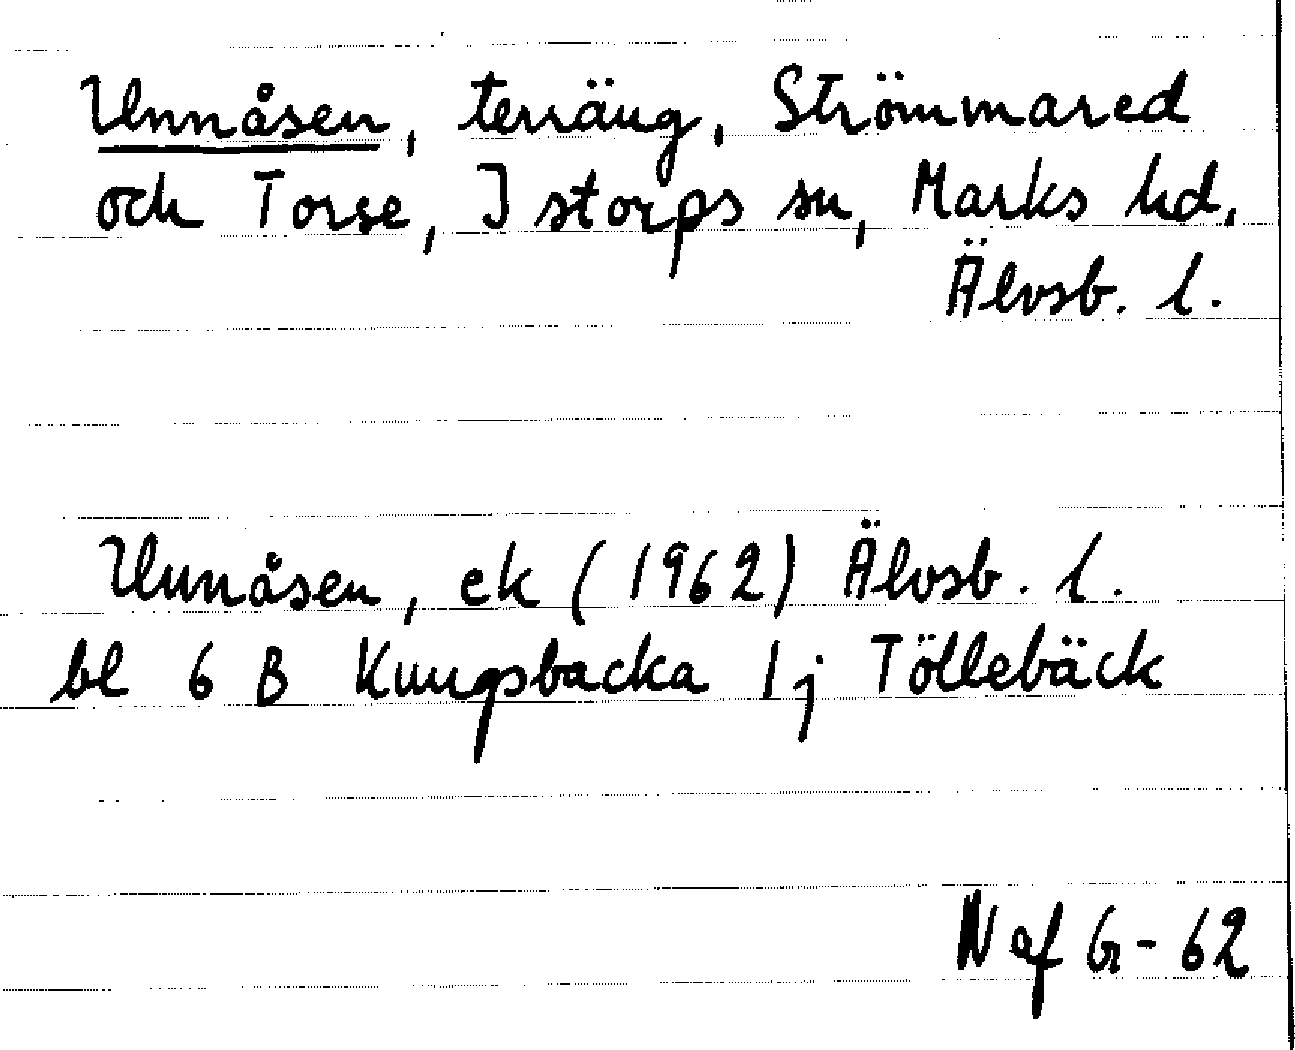 Unnåsen, terräng, Strömmared
och Torse, Istorps sn, Marks hd,
Älvsb. l.
Unnåsen, ek (1962) Älvsb. l.
bl 6 B Kungsbacka 1j Töllebäck
N af G-62